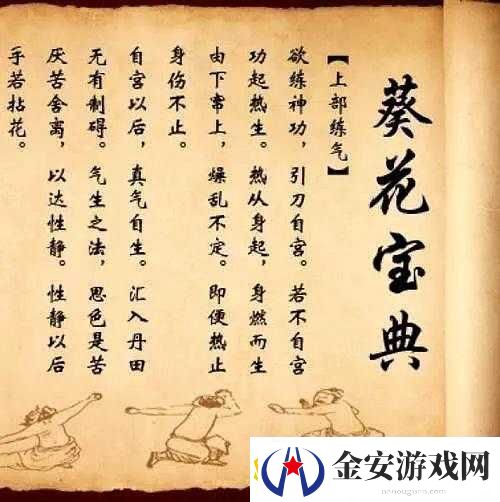 葵花宝典
【上部练气】
欲练神功，引刀自宫。若不自宫
功起热生。热从身起，身燃而生
由下窜上，燥乱不定。即便热止
身伤不止。
自宫以后，真气自生。汇入丹田
无有制碍。气生之法，思色是苦
厌苦舍离，以达性静。性静以后
手若拈花。
金安游戏网